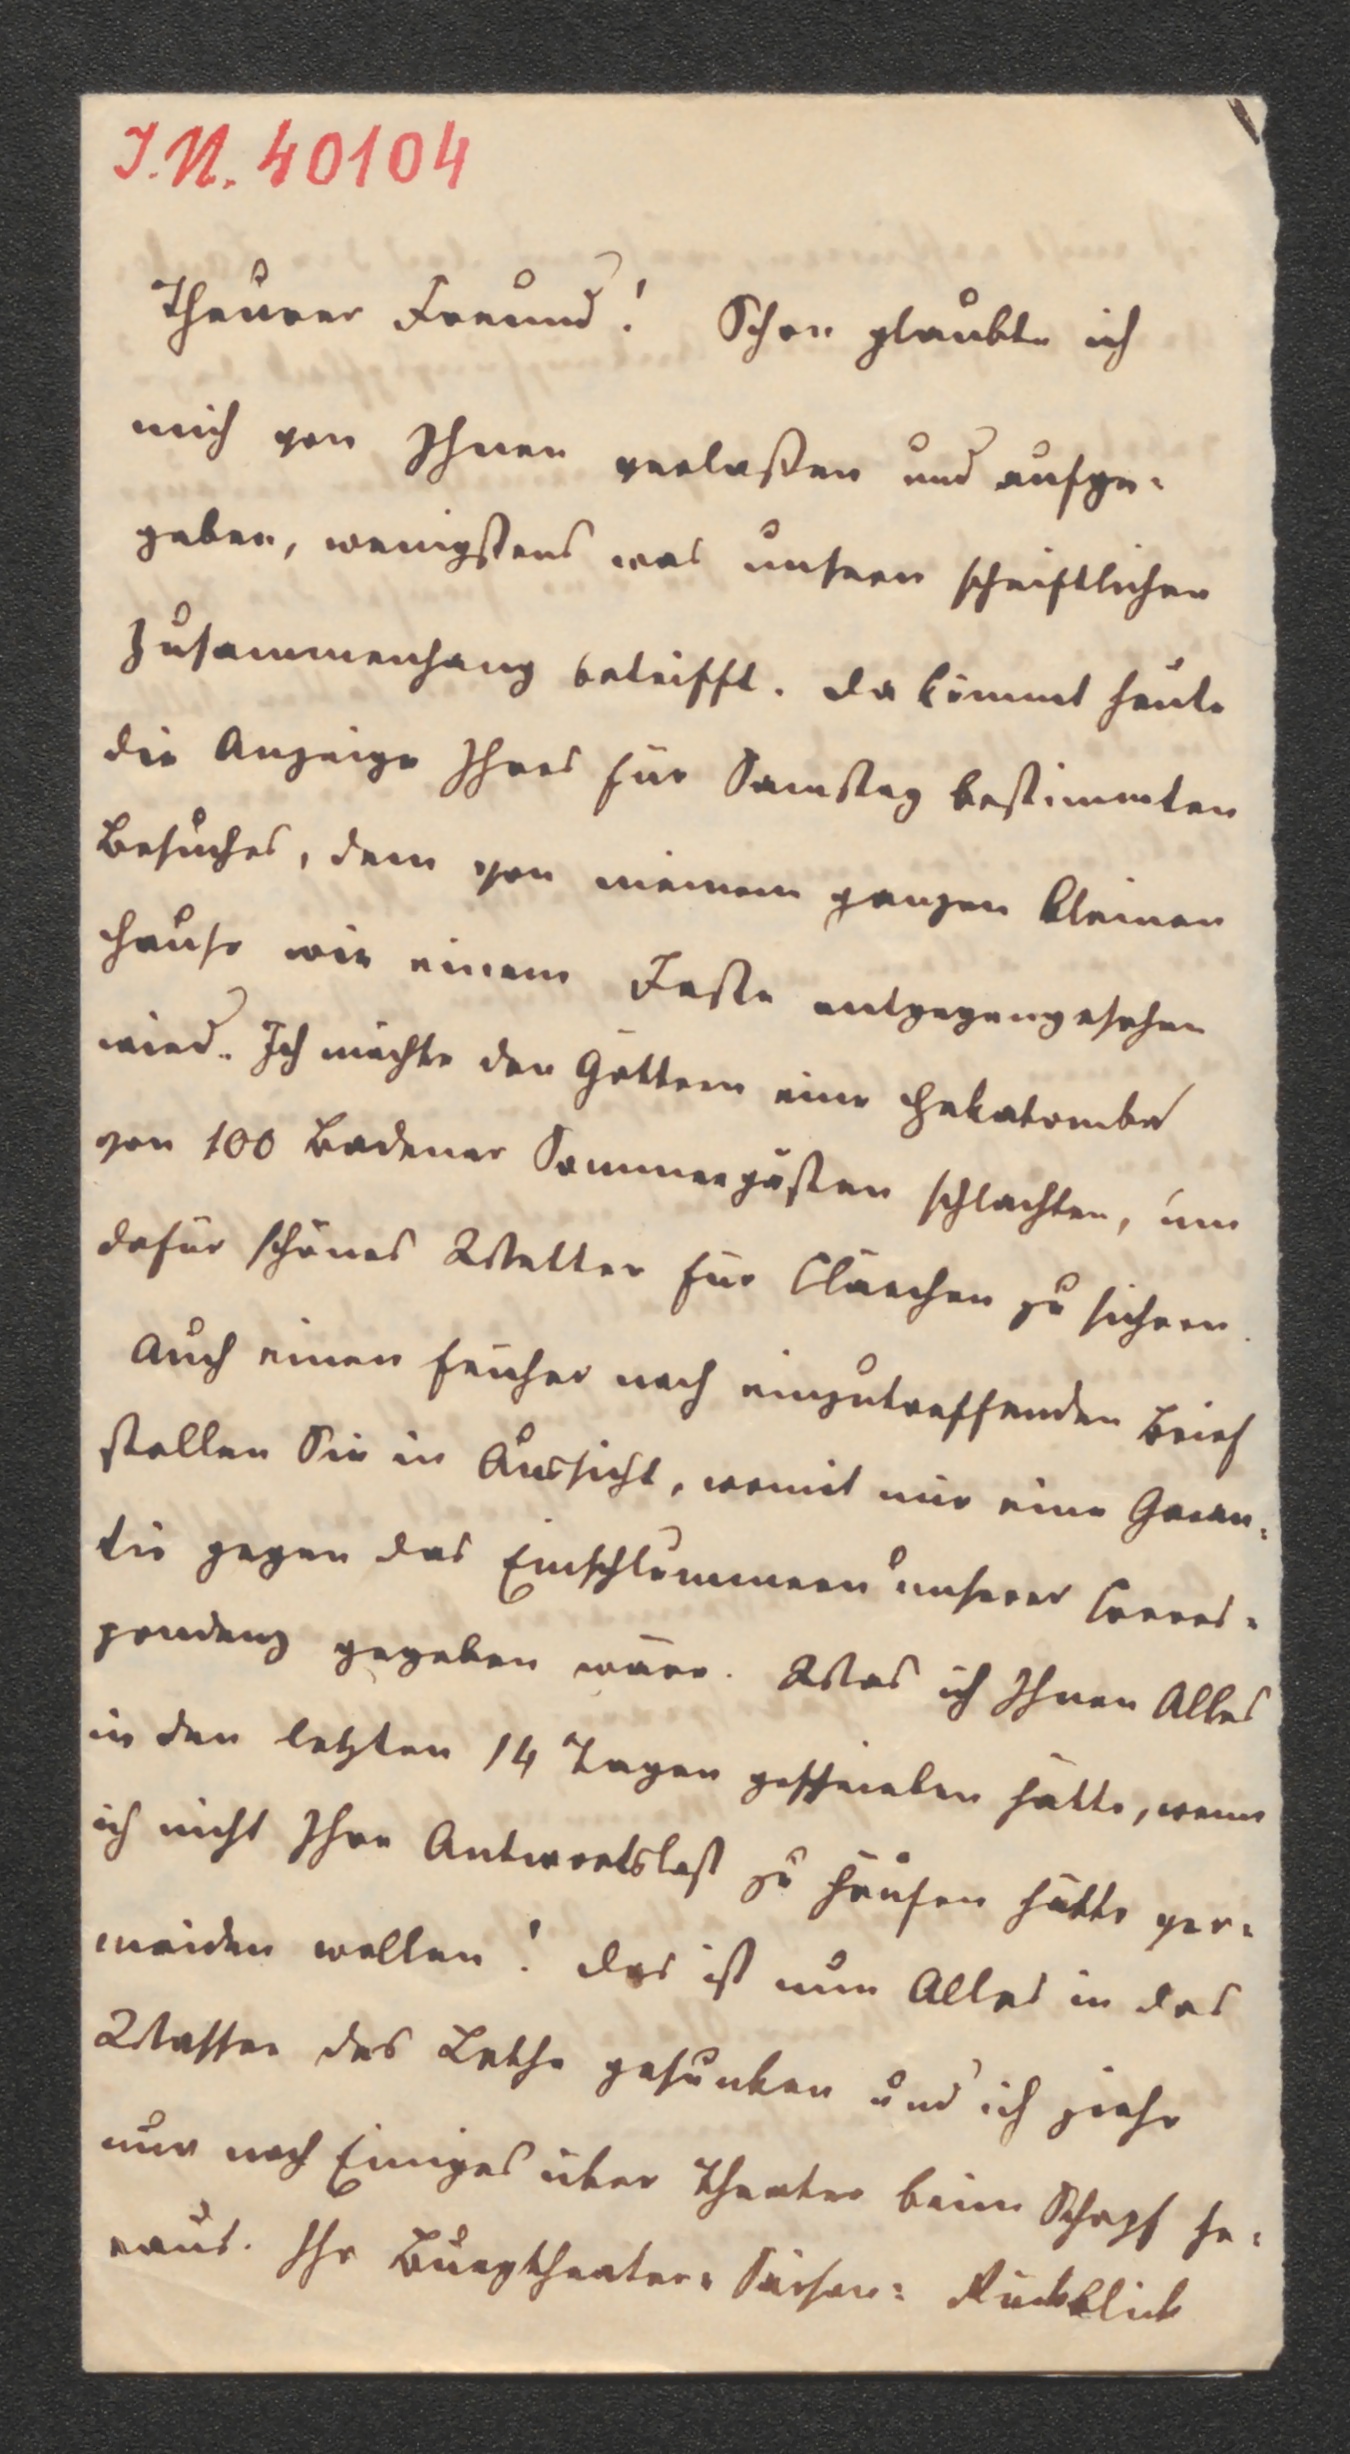 I.N. 40104
Theurer Freund! Schon glaubte ich
mich von Ihnen verlaßen und aufge-
geben, wenigstens was unsern schriftlichen
Zusammenhang betrifft. Da kömmt heute
die Anzeige Ihres für Samstag bestimmten
Besuches, dem von meinem ganzen kleinen
Hause wie einem Feste entgegengesehen
wird. Ich möchte den Göttern eine Hekatombe
von 100 Badener Sommergästen schlachten, um
dafür schönes Wetter für Clärchen zu sichern.
Auch einen früher noch einzutreffenden Brief
stellen Sie in Aussicht, womit mir eine Garan-
tie gegen das Einschlummern unserer Corres-
pondenz gegeben wäre. Was ich Ihnen Alles
in den letzten 14 Tagen geschrieben hätte, wenn
ich nicht Ihre Antwortslast zu häufen hätte ver-
meiden wollen! Das ist nun Alles in das
Wasser des Lethe gesunken und ich ziehe
nur noch Einiges über Theater beim Schopf he-
raus. Ihr Burgtheater-Saison-Rückblick